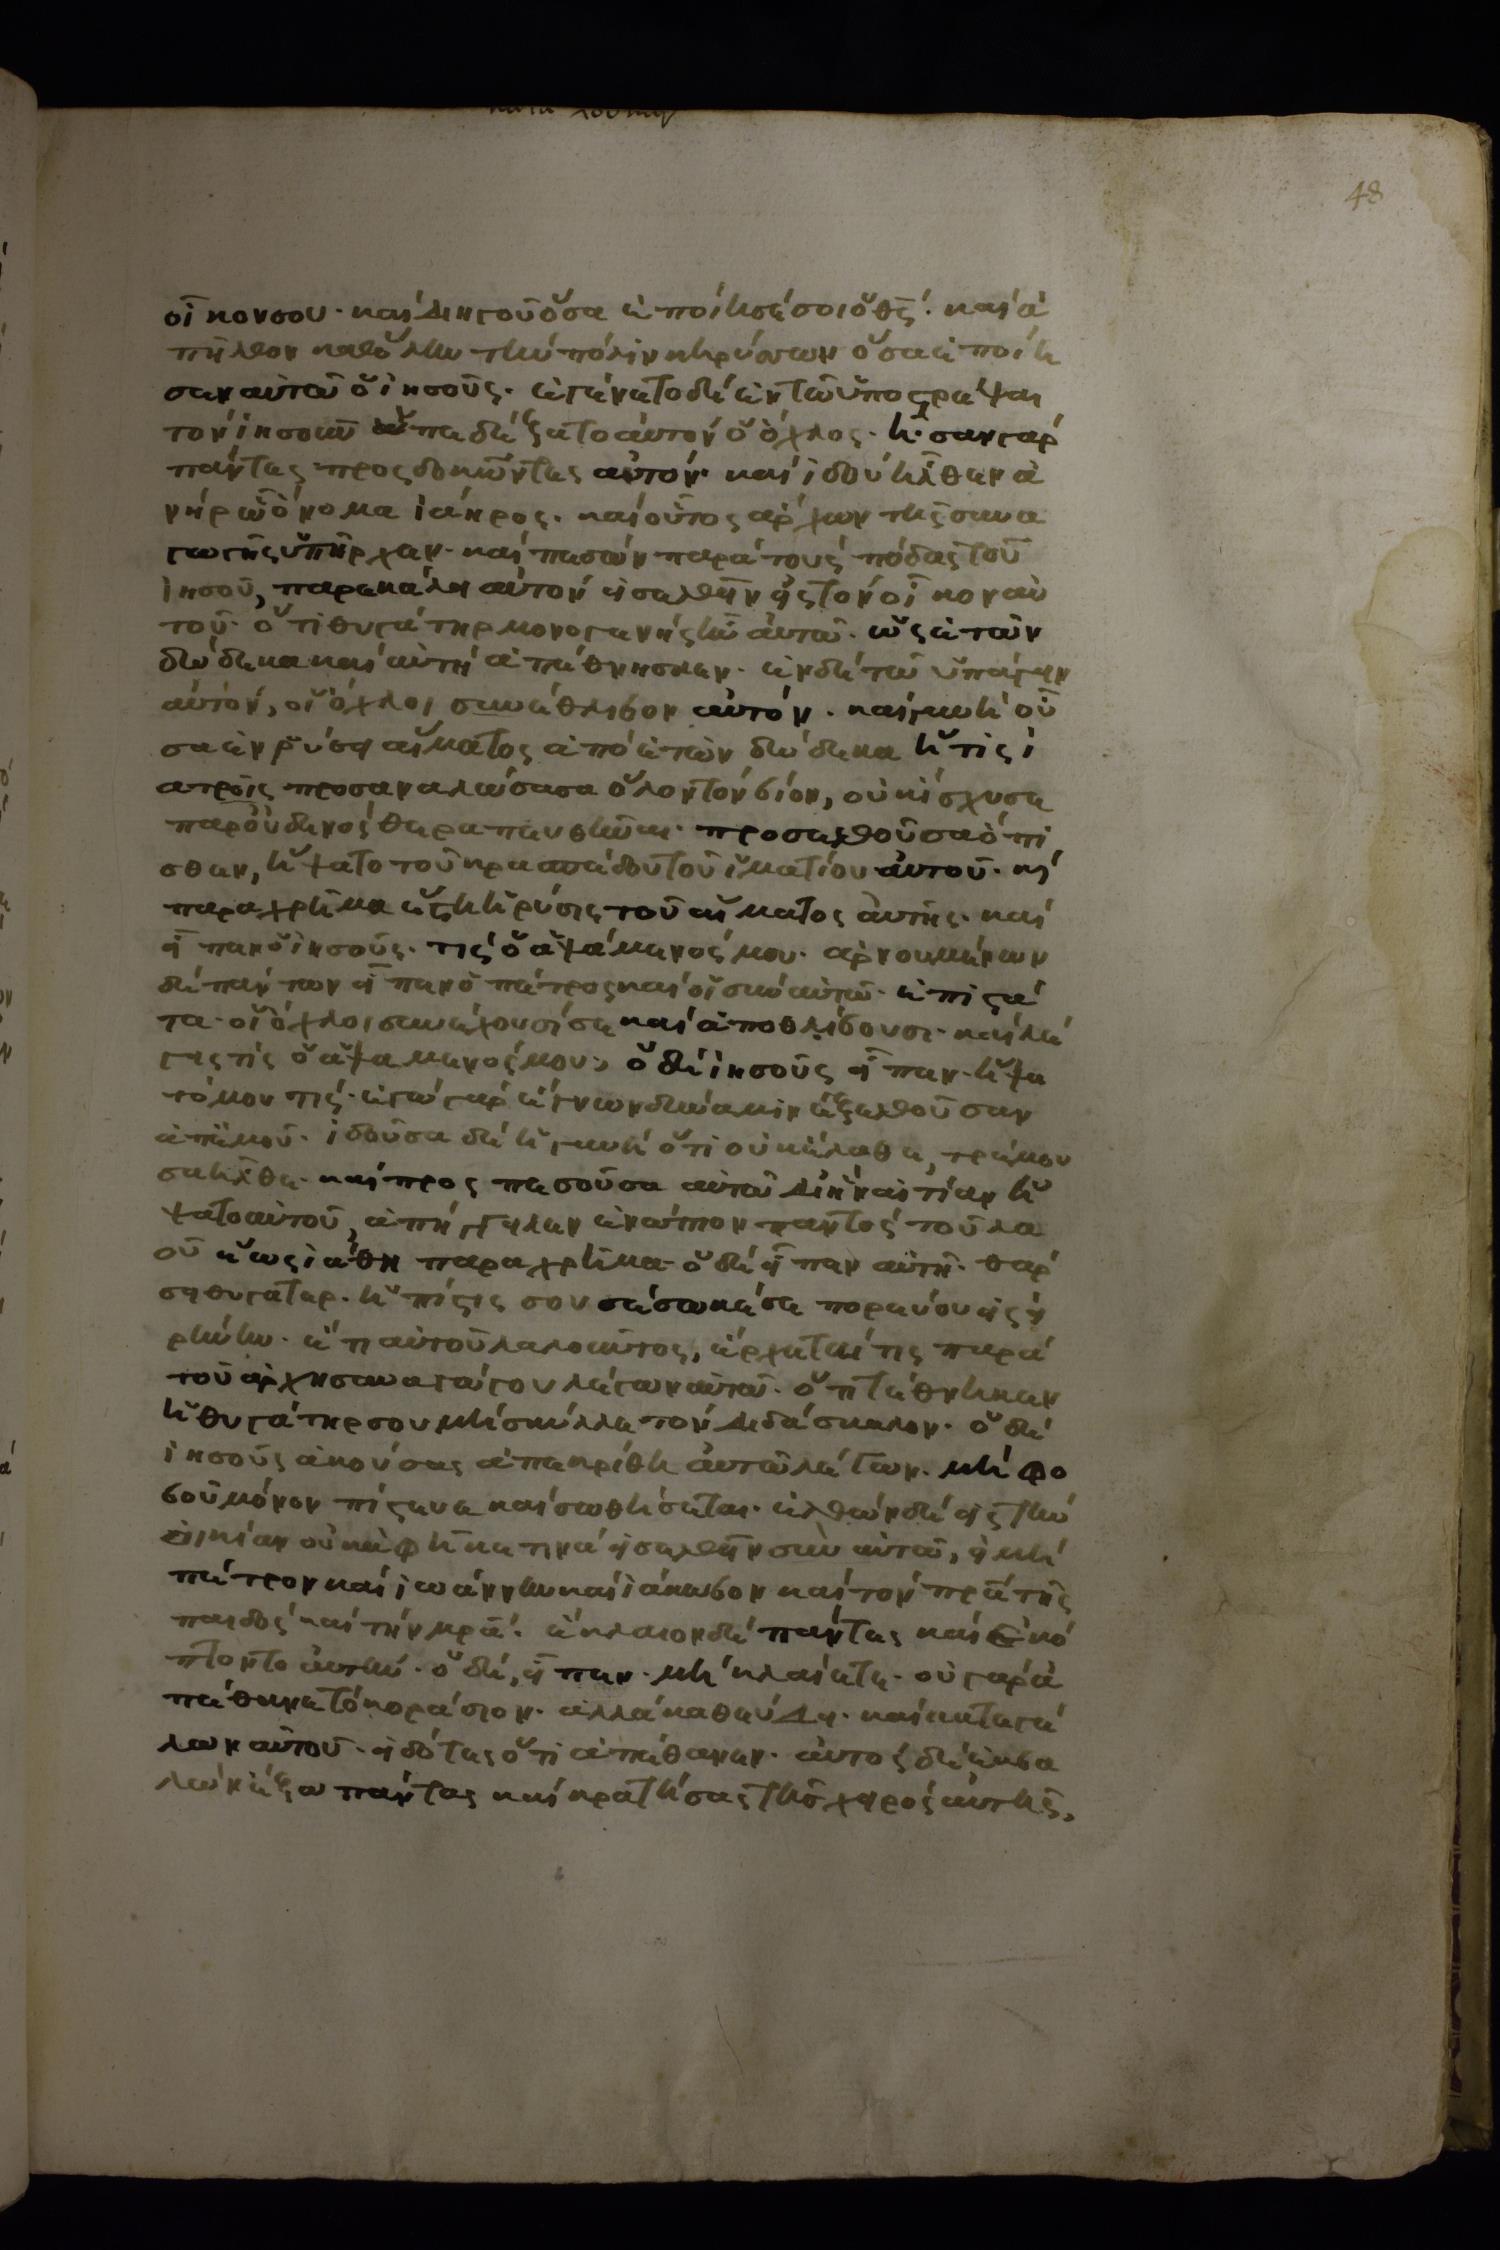 κατὰ λουκᾶν
48
οἶκον σου· καὶ διηγοῦ ὅσα ἐποίησέ σοι ὁ θς̄· καὶ ἀ
πῆλθεν καθ' ὅλην τὴν πόλιν κηρύσσων ὅσα ἐποίη
σεν αὐτῶ ὁ ἰησοῦς· ἐγένετο δὲ ἐν τῶ ὑποστρέψαι
τὸν ἰησοῦν ἀπεδέξατο αὐτὸν ὁ ὄχλος· ἦσαν γὰρ
πάντες προσδοκῶντες αὐτόν· καὶ ἰδοὺ ἦλθεν ἀ
νὴρ ὧ ὄνομα ἰάηρος· καὶ οὗτος ἄρχων τῆς συνα
γωγῆς ὑπῆρχεν· καὶ πεσὼν παρὰ τοὺς πόδας τοῦ
ἰησοῦ, παρεκάλει αὐτὸν εἰσελθεῖν εἰς τὸν οἶκον αὐ
τοῦ· ὅτι θυγάτηρ μονογενὴς ἦν αὐτῶ· ὡς ἐτῶν
δώδεκα καὶ αὐτὴ ἀπέθνησκεν· ἐν δὲ τῶ ὑπάγειν
αὐτὸν, οἱ ὄχλοι συνέθλιβον αὐτόν· καὶ γυνὴ οὖ
σα ἐν ῥύσει αἵματος ἀπὸ ἐτῶν δώδεκα ἥτις ἰ
ατροῖς προσαναλώσασα ὅλον τὸν βίον, οὐκ ἴσχυσε
παρ' οὐδενὸς θεραπευθῆναι· προσελθοῦσα ὄπι
σθεν, ἥψατο τοῦ κρασπέδου τοῦ ἱματίου αὐτοῦ· κὶ
παραχρῆμα ἔστη ἡ ῥύσις τοῦ αἵματος αὐτῆς· καὶ
εἶπεν ὁ ἰησοῦς· τίς ὁ ἁψάμενός μου· ἀρνουμένων
δὲ πάντων εἶπεν ὁ πέτρος καὶ οἱ σὺν αὐτῶ· ἐπιστά
τα· οἱ ὄχλοι συνέχουσί σε καὶ ἀποθλίβουσι· καὶ λέ
γεις τίς ὁ ἁψάμενός μου; ὁ δὲ ἰησοῦς εἶπεν· ἥψα
τό μου τίς· ἐγὼ γὰρ ἔγνων δύναμιν ἐξελθοῦσαν
ἀπ' ἐμοῦ· ἰδοῦσα δὲ ἡ γυνὴ ὅτι οὐκ ἔλαθε, τρέμου
σα ἦλθε· καὶ προσπεσοῦσα αὐτῶ δι' ἣν αἰτίαν ἥ
ψατο αὐτοῦ, ἀπήγγειλεν ἐνώπιον παντὸς τοῦ λα
οῦ κ ὡς ἰάθη παραχρῆμα· ὁ δὲ εἶπεν αὐτῆ· θάρ
σει θύγατερ· ἡ πίστις σου σέσωκέ σε πορεύου εἰς εἰ
ρήνην· ἔτι αὐτοῦ λαλοῦντος, ἔρχεταί τις παρὰ
τοῦ ἀρχησυναγώγου λέγων αὐτῶ· ὅτι τέθνηκεν
ἡ θυγάτηρ σου μὴ σκύλλε τὸν διδάσκαλον· ὁ δὲ
ἰησοῦς ἀκούσας ἀπεκρίθη αὐτῶ λέγων· μὴ φο
βοῦ μόνον πίστευε καὶ σωθήσεται· ἐλθὼν δὲ εἰς τὴν
οἰκίαν οὐκ ἀφῆκε τινὰ εἰσελθεῖν σὺν αὐτῶ, εἰ μὴ
πέτρον καὶ ἰωάννην καὶ ἰάκωβον καὶ τὸν πρ̄α τῆς
παιδὸς καὶ τὴν μρ̄α· ἔκλαιον δὲ πάντες καὶ ἐκό
πτοντο αὐτήν· ὁ δὲ, εἶπεν· μὴ κλαίετε· οὐ γὰρ ἀ
πέθανε τὸ κοράσιον· ἀλλὰ καθεύδει· καὶ κατεγέ
λων αὐτοῦ· εἰδότες ὅτι ἀπέθανεν· αὐτὸς δὲ ἐκβα
λὼν ἔξω πάντας καὶ κρατήσας τῆς χειρὸς αὐτῆς,